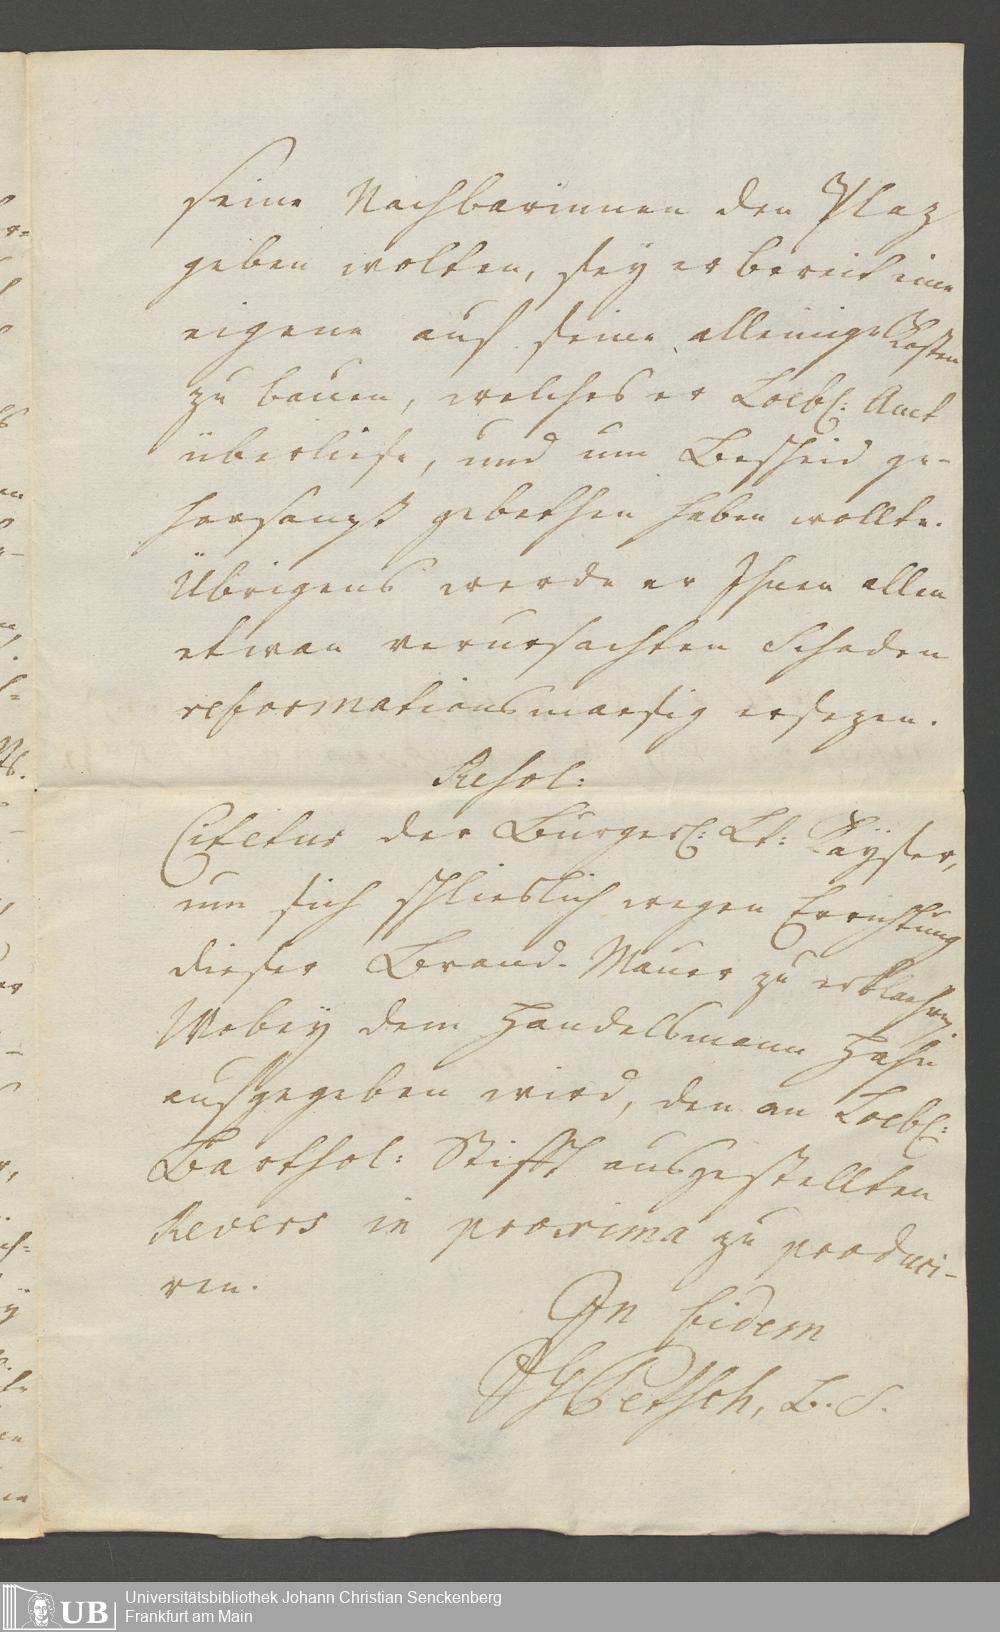 seine Nachbarinnen den Plaz
geben wolten, seÿ er bereit eine
eigene auf seine alleinige Kosten
zu bauen, welches er Loebl: Amt
überliese, und um Bescheid ge-
horsamst gebethen haben wollte.
Übrigens werde er Ihnen allen
etwan verursachten Schaden
reformationsmaesig ersezen.
Resol:
Citetur der Burgerl: Lt: Kaÿser,
um sich schlieslich wegen Errichtung
dieser Brand-Mauer zu erklaehren.
Wobeÿ dem Handelsmann Hahn
aufgegeben wird, den an Loebl:
Barthol: Stifft ausgestellten
Revers in proxima zu produci-
ren.
In fidem
Petsch, B. S.
Universitätsbibliothek Johann Christian Senckenberg
Frankfurt am Main
UB